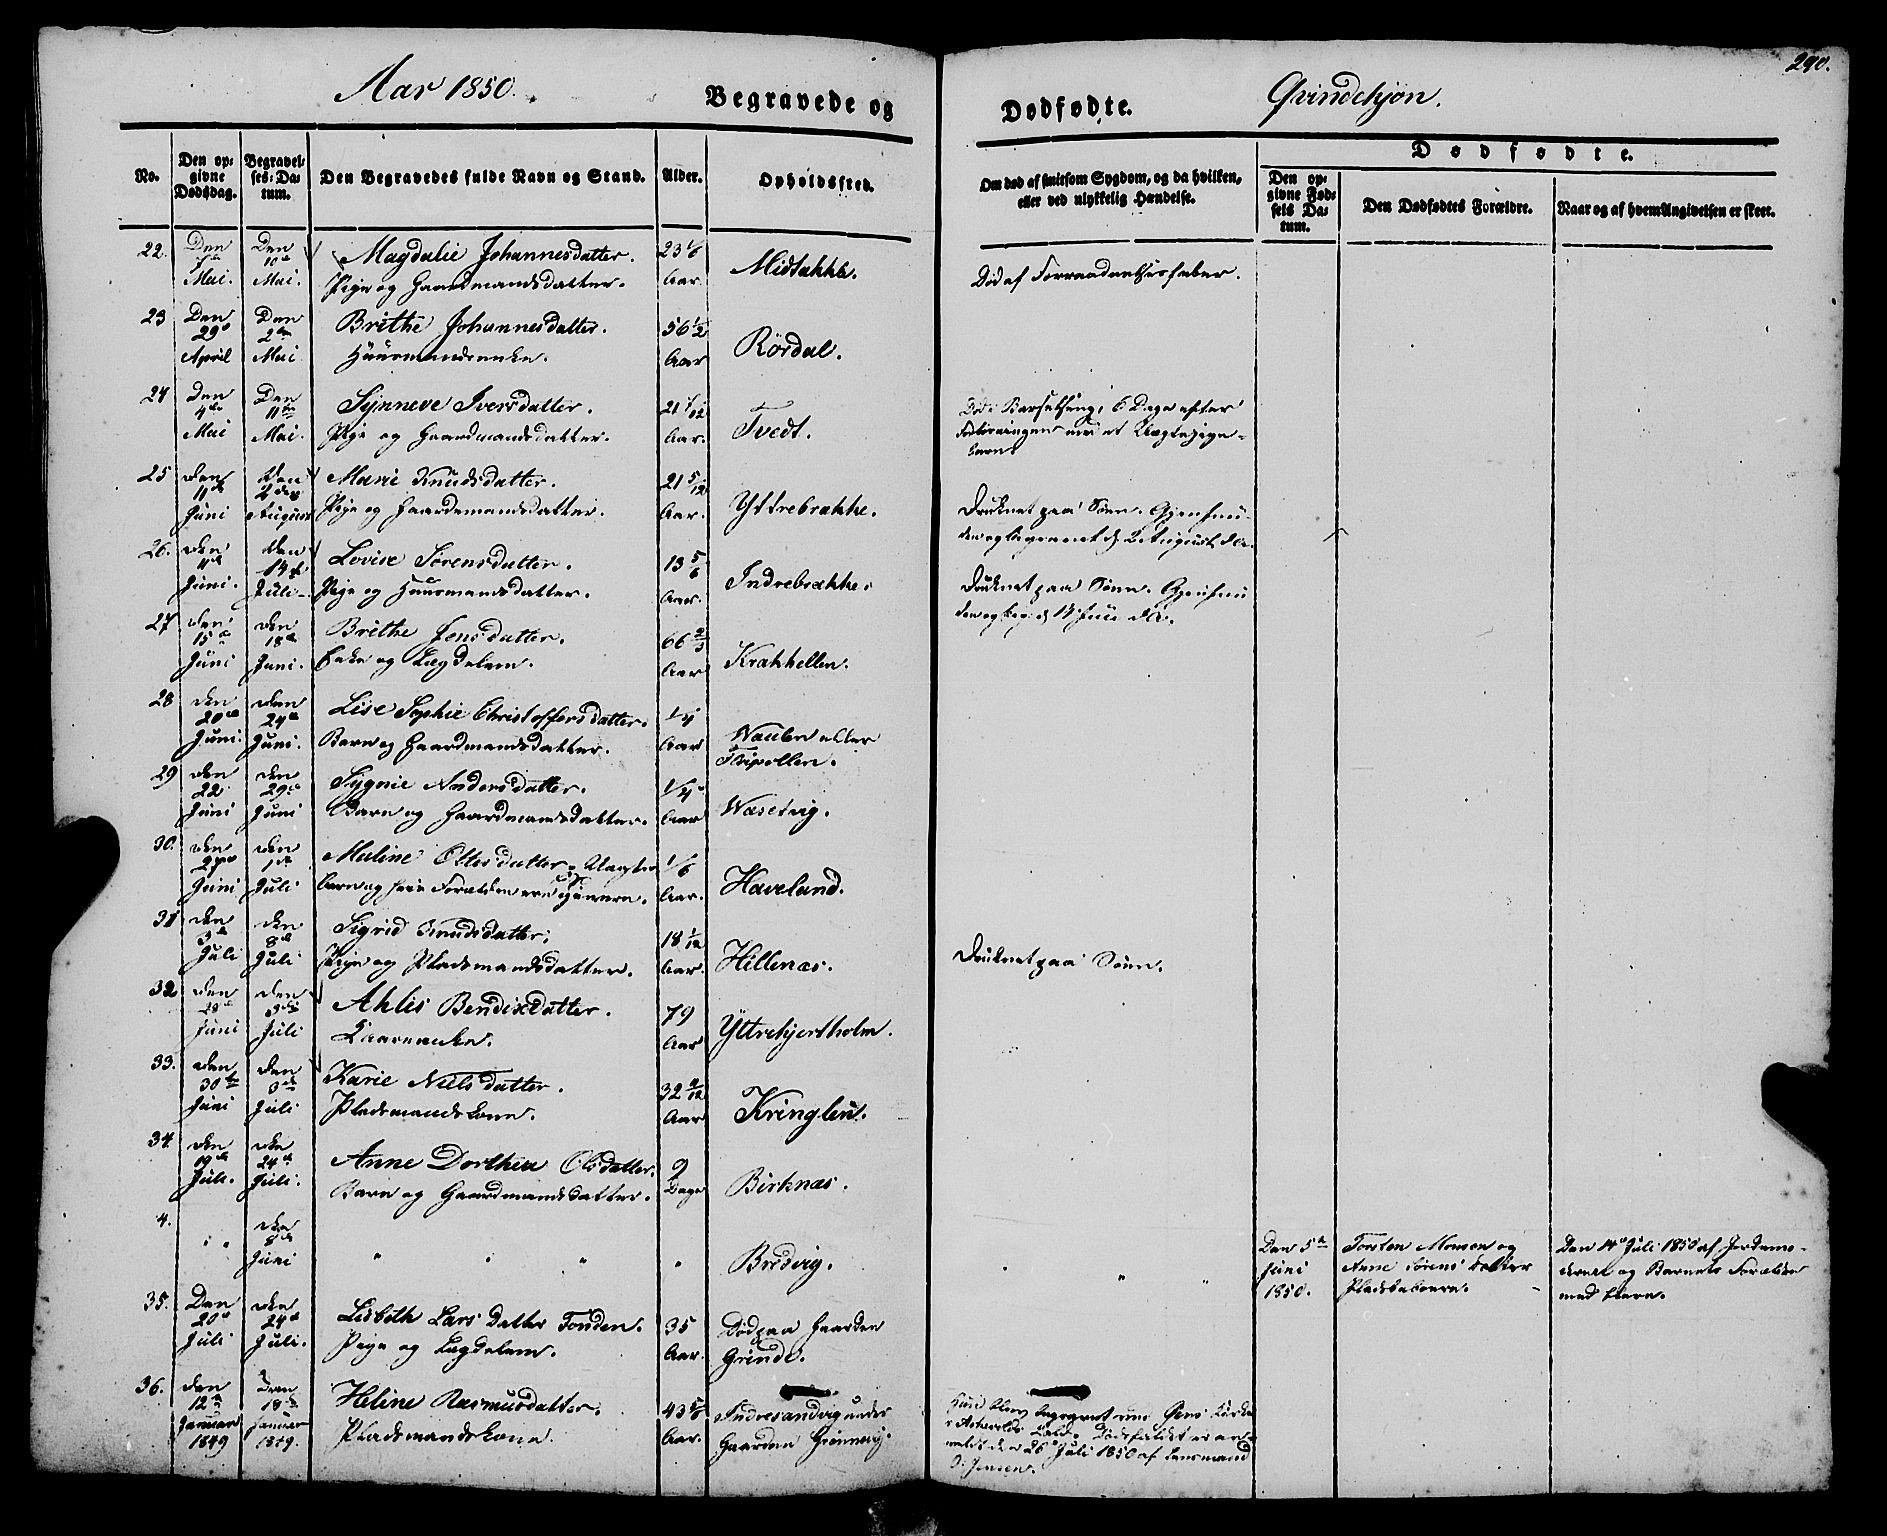 Aar 1850.
Begravede og
Dødfødte.
Qvindekjøn.
290.
No.
Den opgivne Dødsdag.
Begravelses-Datum.
Den Begravedes fulde Navn og Stand.
Alder.
Opholdssted.
Om død af smitsom Sygdom, og da hvilken,
eller ved ulykkelig Hændelse.
Dødfødte.
Den opgivne Fødsels Datum.
Den Dødfødtes Forældre.
Naar og af hvem Angivelsen er skeet.
22. Den Mai. Den 10de Mai. Magdalie Johannesdatter. 23 1/6 Aar. Midtakke.
Pige og Gaardmandsdatter.
Død af Forraadnelsesfeber.
23 Den 29de April Den 2den Mai Brithe Johannesdatter. 56 1/2 Aar Rørdal.
Huusmandsenke.
24 Den 4de Mai Den 11te Mai. Synneve Iversdatter. 21 Aar. Tvedt.
Pige og Gaardmandsdatter.
Død i Barselseng, 6 Dage efter
25 Den 11te Juni Den 2den August Marie Knudsdatter. 21 5/12 Aar. Yttrebrække.
Pige og Gaardmandsdatter.
Druknet paa Søen. Gjenfun-
den og begravet d. 2 August d.A.
26. Den 11te Juni. Den 14de Juli Lovise Sørensdatter. 13 5/6 Aar. Indrebrække.
Pige og Huusmandsdatter.
Druknet paa Søen. Gjenfun
den og beg. d. 14 Juli d.A.
27 Den 15de Juni Den 18de Juni. Brithe Jensdatter. 66 2/3 Aar Krakhellen.
Enke og Lægdslem.
28 Den 20de Juni. Den 24de Juni. Lise Sophie Christoffersdatter. 1/4 Aar
Barn og Gaardmandsdatter.
eller
29 Den 22 Juni Den 29de Juni Sygnie Andersdatter. 1/4 Aar Wasetvig.
Barn og Gaardmandsdatter.
30. Den 27de Juni Den 1ste Juli Maline Ottesdatter, Uægte 1/6 Aar. Haveland.
Barn og
31 Den 3de Juli Den 8de Juli Sigrid Knudsdatter. 18 1/12 Aar. Hillenæs.
Pige og Pladsmandsdatter.
Druknet paa Søen.
32 Den 28de Juni Den 3die Juli Ahlis Bendixdatter. 79 Aar Yttrehjertholm.
Kaarenke.
33. Den 30te Juni Den Juli Karie Nielsdatter. 32 Aar Kringlen.
Pladsmandskone.
34. Den 19de Juli. Den 24de Juli. Anne Dorthea Olsdatter. 9 Dage Birknæs.
Barn og Gaardmandsdatter.
4. " Den 8de Juni " " " " Bredvig. " " "
Den 5te Juni 1850.
Torsten Monsen og
Anne Sørensdatter
Den 14de Juli 1850 af Jordemo-
deren og Barnets Forældre
35. Den 20de Juli Den 24de Juli. Lisbeth Larsdatter Tonden. 35 Aar. Død paa Gaarden
Pige og Lægdslem. Grinde.
36. Den 12te Januar 1849 Den 18de Januar 1849. Heline Rasmusdatter. 43 5/6 Aar. Indresandvig under
Pladsmandskone. Gaarden Grønnevig.
Hun blev begravet ved Kirke
i Askevolds Dødsfaldet er an-
meldt den 26de Juli 1850 af Lensmand
Jensen.